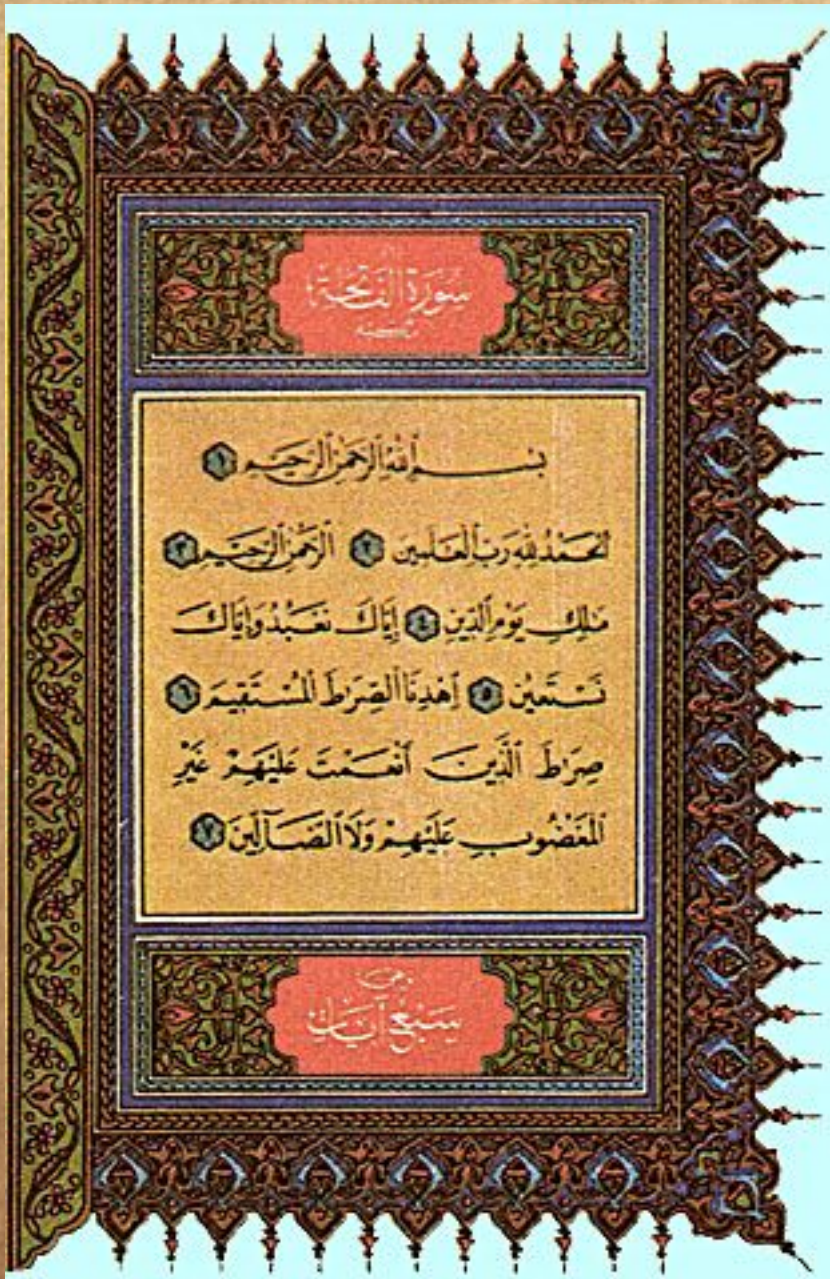 سورة الفاتحة
مكية
بِسْمِ ٱللَّهِ ٱلرَّحْمَٰنِ ٱلرَّحِيمِ ١
ٱلْحَمْدُ لِلَّهِ رَبِّ ٱلْعَٰلَمِينَ ٢ ٱلرَّحْمَٰنِ ٱلرَّحِيمِ ٣
مَٰلِكِ يَوْمِ ٱلدِّينِ ٤ إِيَّاكَ نَعْبُدُ وَإِيَّاكَ
نَسْتَعِينُ ٥ ٱهْدِنَا ٱلصِّرَٰطَ ٱلْمُسْتَقِيمَ ٦
صِرَٰطَ ٱلَّذِينَ أَنْعَمْتَ عَلَيْهِمْ غَيْرِ
ٱلْمَغْضُوبِ عَلَيْهِمْ وَلَا ٱلضَّآلِّينَ ٧
وهي
سبع آيات